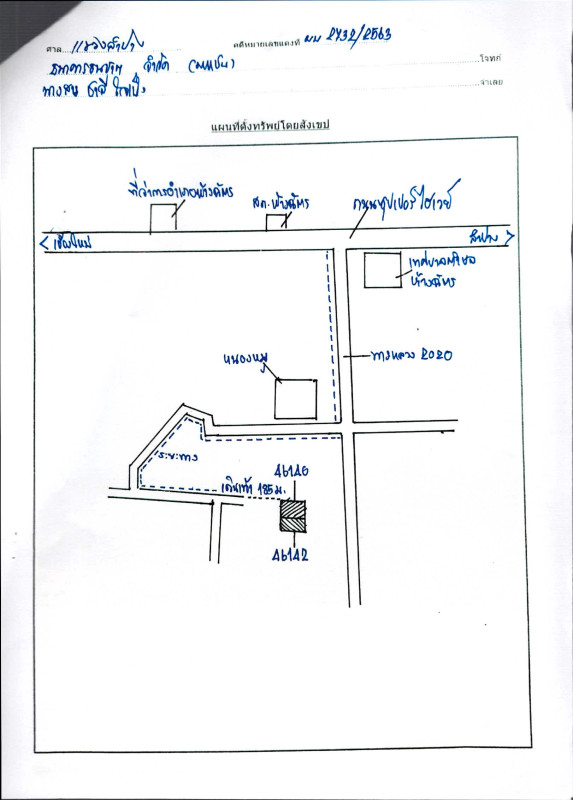 ศาล แขวงลำปาง คดีหมายเลขแดงที่ ผบ 2432/2563
ธนาคารธนชาต จำกัด (มหาชน) โจทก์
จำเลย
แผนที่ตั้งทรัพย์โดยสังเขป
ที่ว่าการอำเภอห้างฉัตร
สภ.ห้างฉัตร
ถนนซุปเปอร์ไฮเวย์
เชียงใหม่
ลำปาง
เทศบาลตำบล
ห้างฉัตร
ทางหลวง 2020
ระยะทาง
เดินเท้า 185 ม.
46140
46142